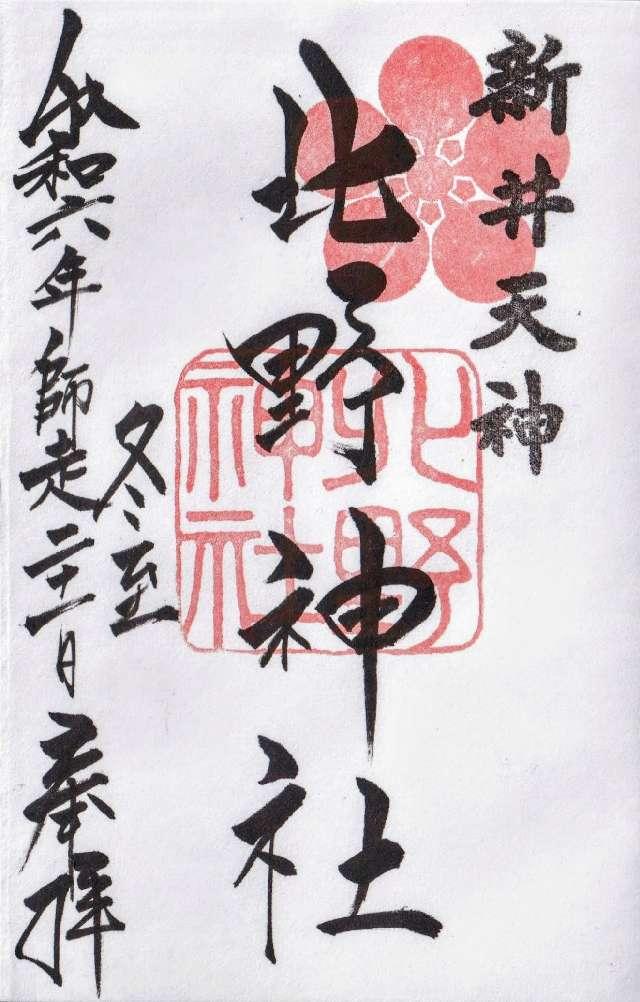 新井天神
北野神社
北野
神社
冬至
令和六年師走二十一日奉拝